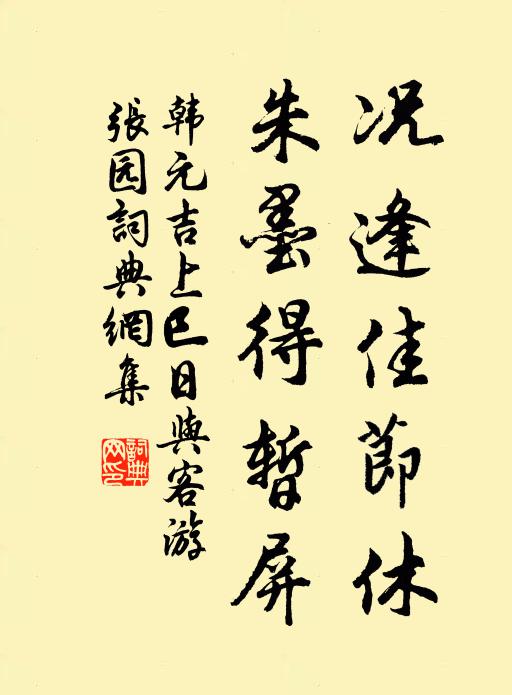 况逢佳節休
朱墨得暫屏
韩元吉上巳日與客游
張园詞典網集
詞典网印